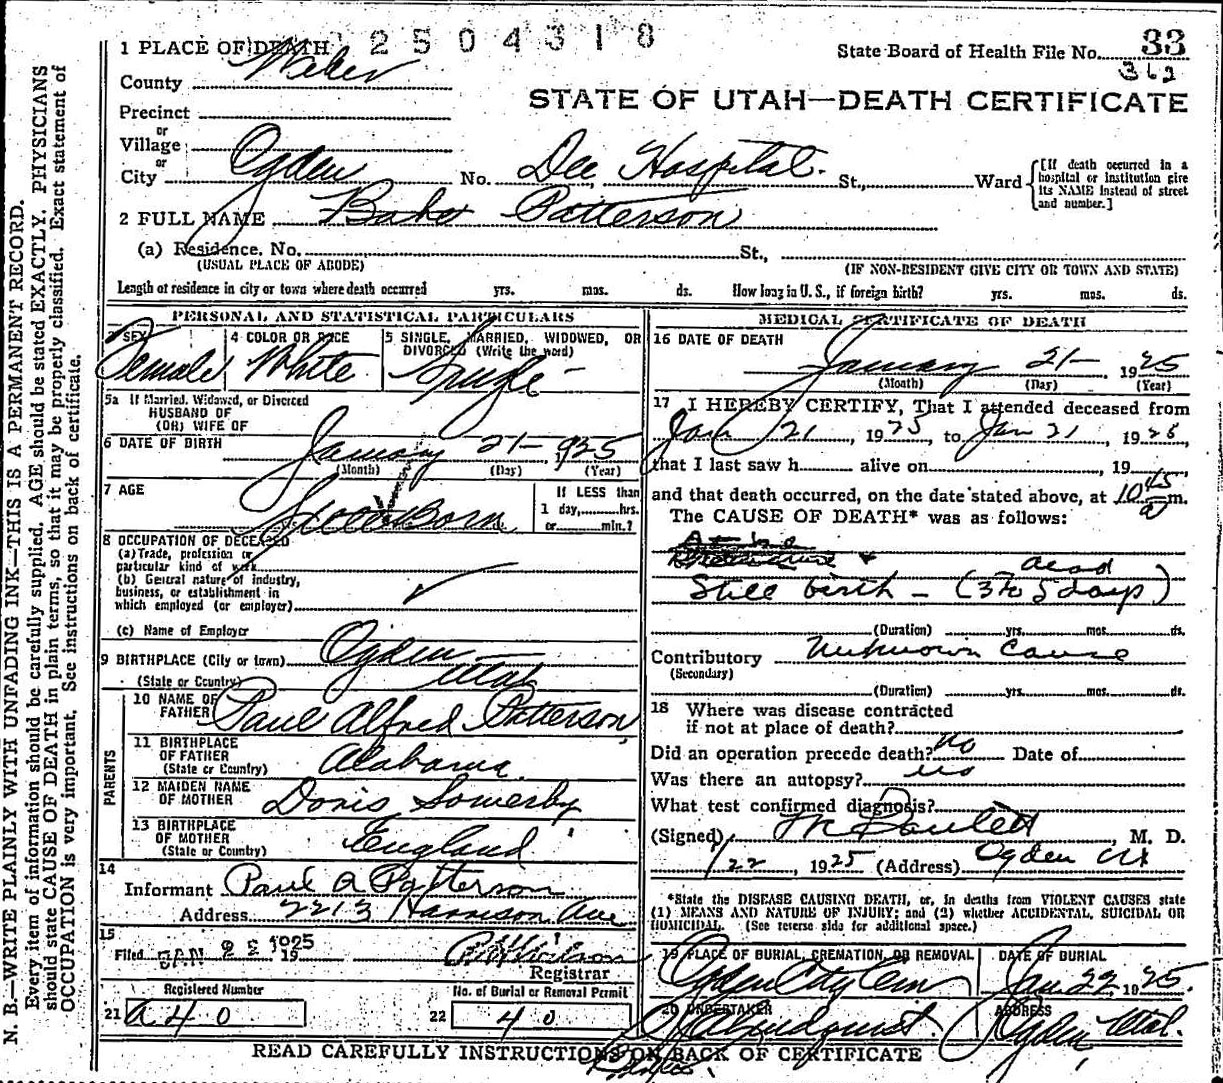 N. B.—WRITE PLAINLY WITH UNFADING INK—THIS IS A PERMANENT RECORD.
Every item of information should be carefully supplied. AGE should be stated EXACTLY. PHYSICIANS
should state CAUSE OF DEATH in plain terms, so that it may be properly classified. Exact statement of
OCCUPATION is very important. See instructions on back of certificate.
2504318
1 PLACE OF DEATH
State Board of Health File No. 33
362
County Weber
STATE OF UTAH—DEATH CERTIFICATE
Precinct
or
Village
or
City Ogden No. Dee Hospital. St., Ward
[If death occurred in a
hospital or institution give
its NAME instead of street
and number.]
2 FULL NAME Patterson
(a) Residence. No. St.,
(USUAL PLACE OF ABODE) (IF NON-RESIDENT GIVE CITY OR TOWN AND STATE)
Length of residence in city or town where death occurred yrs. mos. ds. How long in U. S., if foreign birth? yrs. mos. ds.
PERSONAL AND STATISTICAL PARTICULARS
3 SEX 4 COLOR OR RACE 5 SINGLE, MARRIED, WIDOWED, OR
DIVORCED (Write the word)
Female White Single
5a If Married, Widowed, or Divorced
HUSBAND OF
(OR) WIFE OF
6 DATE OF BIRTH January 21— 1925
(Month) (Day) (Year)
7 AGE
If LESS than
1 day, hrs.
or min.?
Still Born
8 OCCUPATION OF DECEASED
(a) Trade, profession or
particular kind of work
(b) General nature of industry,
business, or establishment in
which employed (or employer)
(c) Name of Employer
9 BIRTHPLACE (City or town) Ogden
(State or Country) Utah
PARENTS
10 NAME OF
FATHER Paul Alfred Patterson,
11 BIRTHPLACE
OF FATHER
(State or Country) Alabama.
12 MAIDEN NAME
OF MOTHER Doris Somerby
13 BIRTHPLACE
OF MOTHER
(State or Country) England
14
Informant Paul A Patterson
Address 2213 Harrison Ave
15
Filed JAN 22 1925 19
Registrar
Registered Number No. of Burial or Removal Permit
21 a40 22 40
MEDICAL CERTIFICATE OF DEATH
16 DATE OF DEATH
January 21— 1925
(Month) (Day) (Year)
17 I HEREBY CERTIFY, That I attended deceased from
Jan 21, 1925, to Jan 21, 1925
that I last saw h alive on , 19
and that death occurred, on the date stated above, at 10 45 a m.
The CAUSE OF DEATH* was as follows:
dead
Still birth — (3 to 5 days)
(Duration) yrs. mos. ds.
Contributory Unknown Cause
(Secondary)
(Duration) yrs. mos. ds.
18 Where was disease contracted
if not at place of death?
Did an operation precede death? no Date of
Was there an autopsy? no
What test confirmed diagnosis?
(Signed) , M. D.
1/22, 1925 (Address) Ogden Ut
*State the DISEASE CAUSING DEATH, or, in deaths from VIOLENT CAUSES state
(1) MEANS AND NATURE OF INJURY; and (2) whether ACCIDENTAL, SUICIDAL OR
HOMICIDAL. (See reverse side for additional space.)
19 PLACE OF BURIAL, CREMATION, OR REMOVAL DATE OF BURIAL
Ogden City Cem Jan 22, 1925.
20 UNDERTAKER ADDRESS
Ogden, Utah.
READ CAREFULLY INSTRUCTIONS ON BACK OF CERTIFICATE